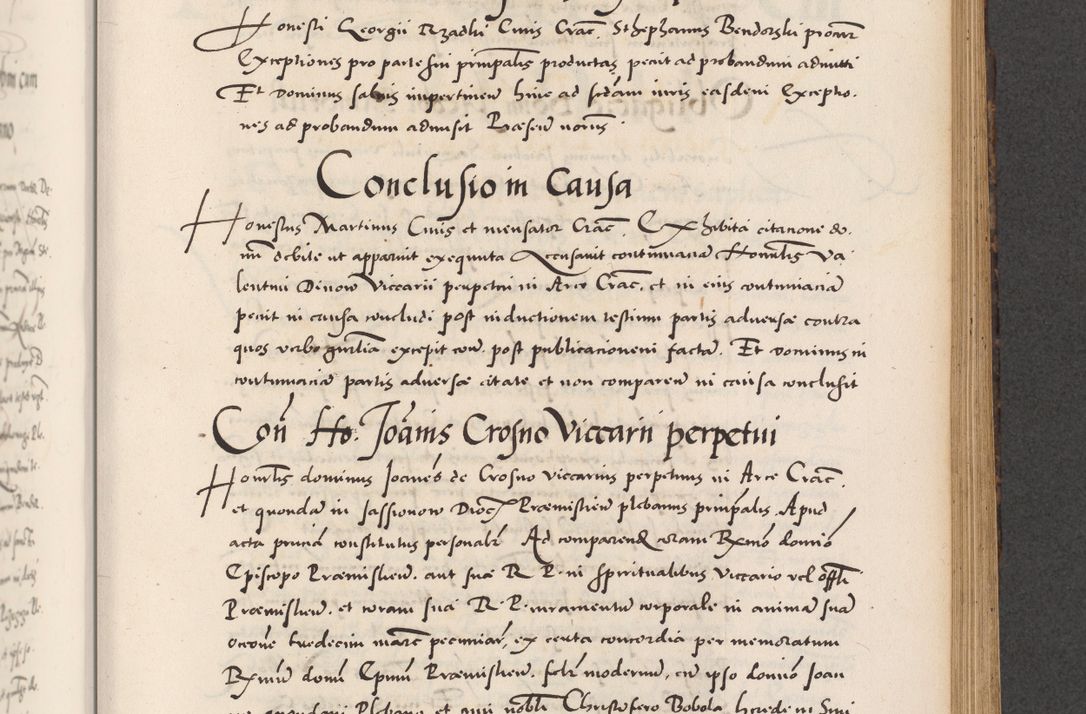 Honesti Georgii Rzadki Civis Crac. Stephanus Bendorski procur
Exceptiones pro parte sui principalis productas petiit ad probandum admitti
Et dominus salvis impertinen hinc ad fidam iuris easdem Exceptio.
nes ad probandum admisit Præsen noriis
Conclusio in Causa
Honestus Martinus Civis et mensator Crac. Exhibita citacione do.
debite ut apparuit exequuta Accusavit contumaciam Honorabilis Va
lentini Denow Viccarii perpetui in Arce Crac. et in eius contumaciam
petiit in causa concludi post inductionem testium partis adversæ contra
quos verbo excepit post publicacionem factam. Et dominus in
contumaciam partis adversæ citatæ et non comparen in causa conclusit
Con Ho. Joannis Crosno Viccarii perpetui
Honorlis dominus Joannes de Crosno viccarius perpetuus in Arce Crac.
et quondam in Jassionow Dioc Præmislien plebanus principalis. Apud
acta præsentia constitutus personalr Ad comparend coram Rmo domino
Episcopo Præmislien. aut suæ R. P. in spiritualibus Viccario vel offli
Præmislien. et coram sua R. P. iuramentum corporale in animam suam
tredecim marc pecuniar, ex certa concordia per memoratum
Rmum domin Epum Præmislien. modernum, cum ipso domino Joan
quondam Plebano et nobli Christofero Bobola hærede in